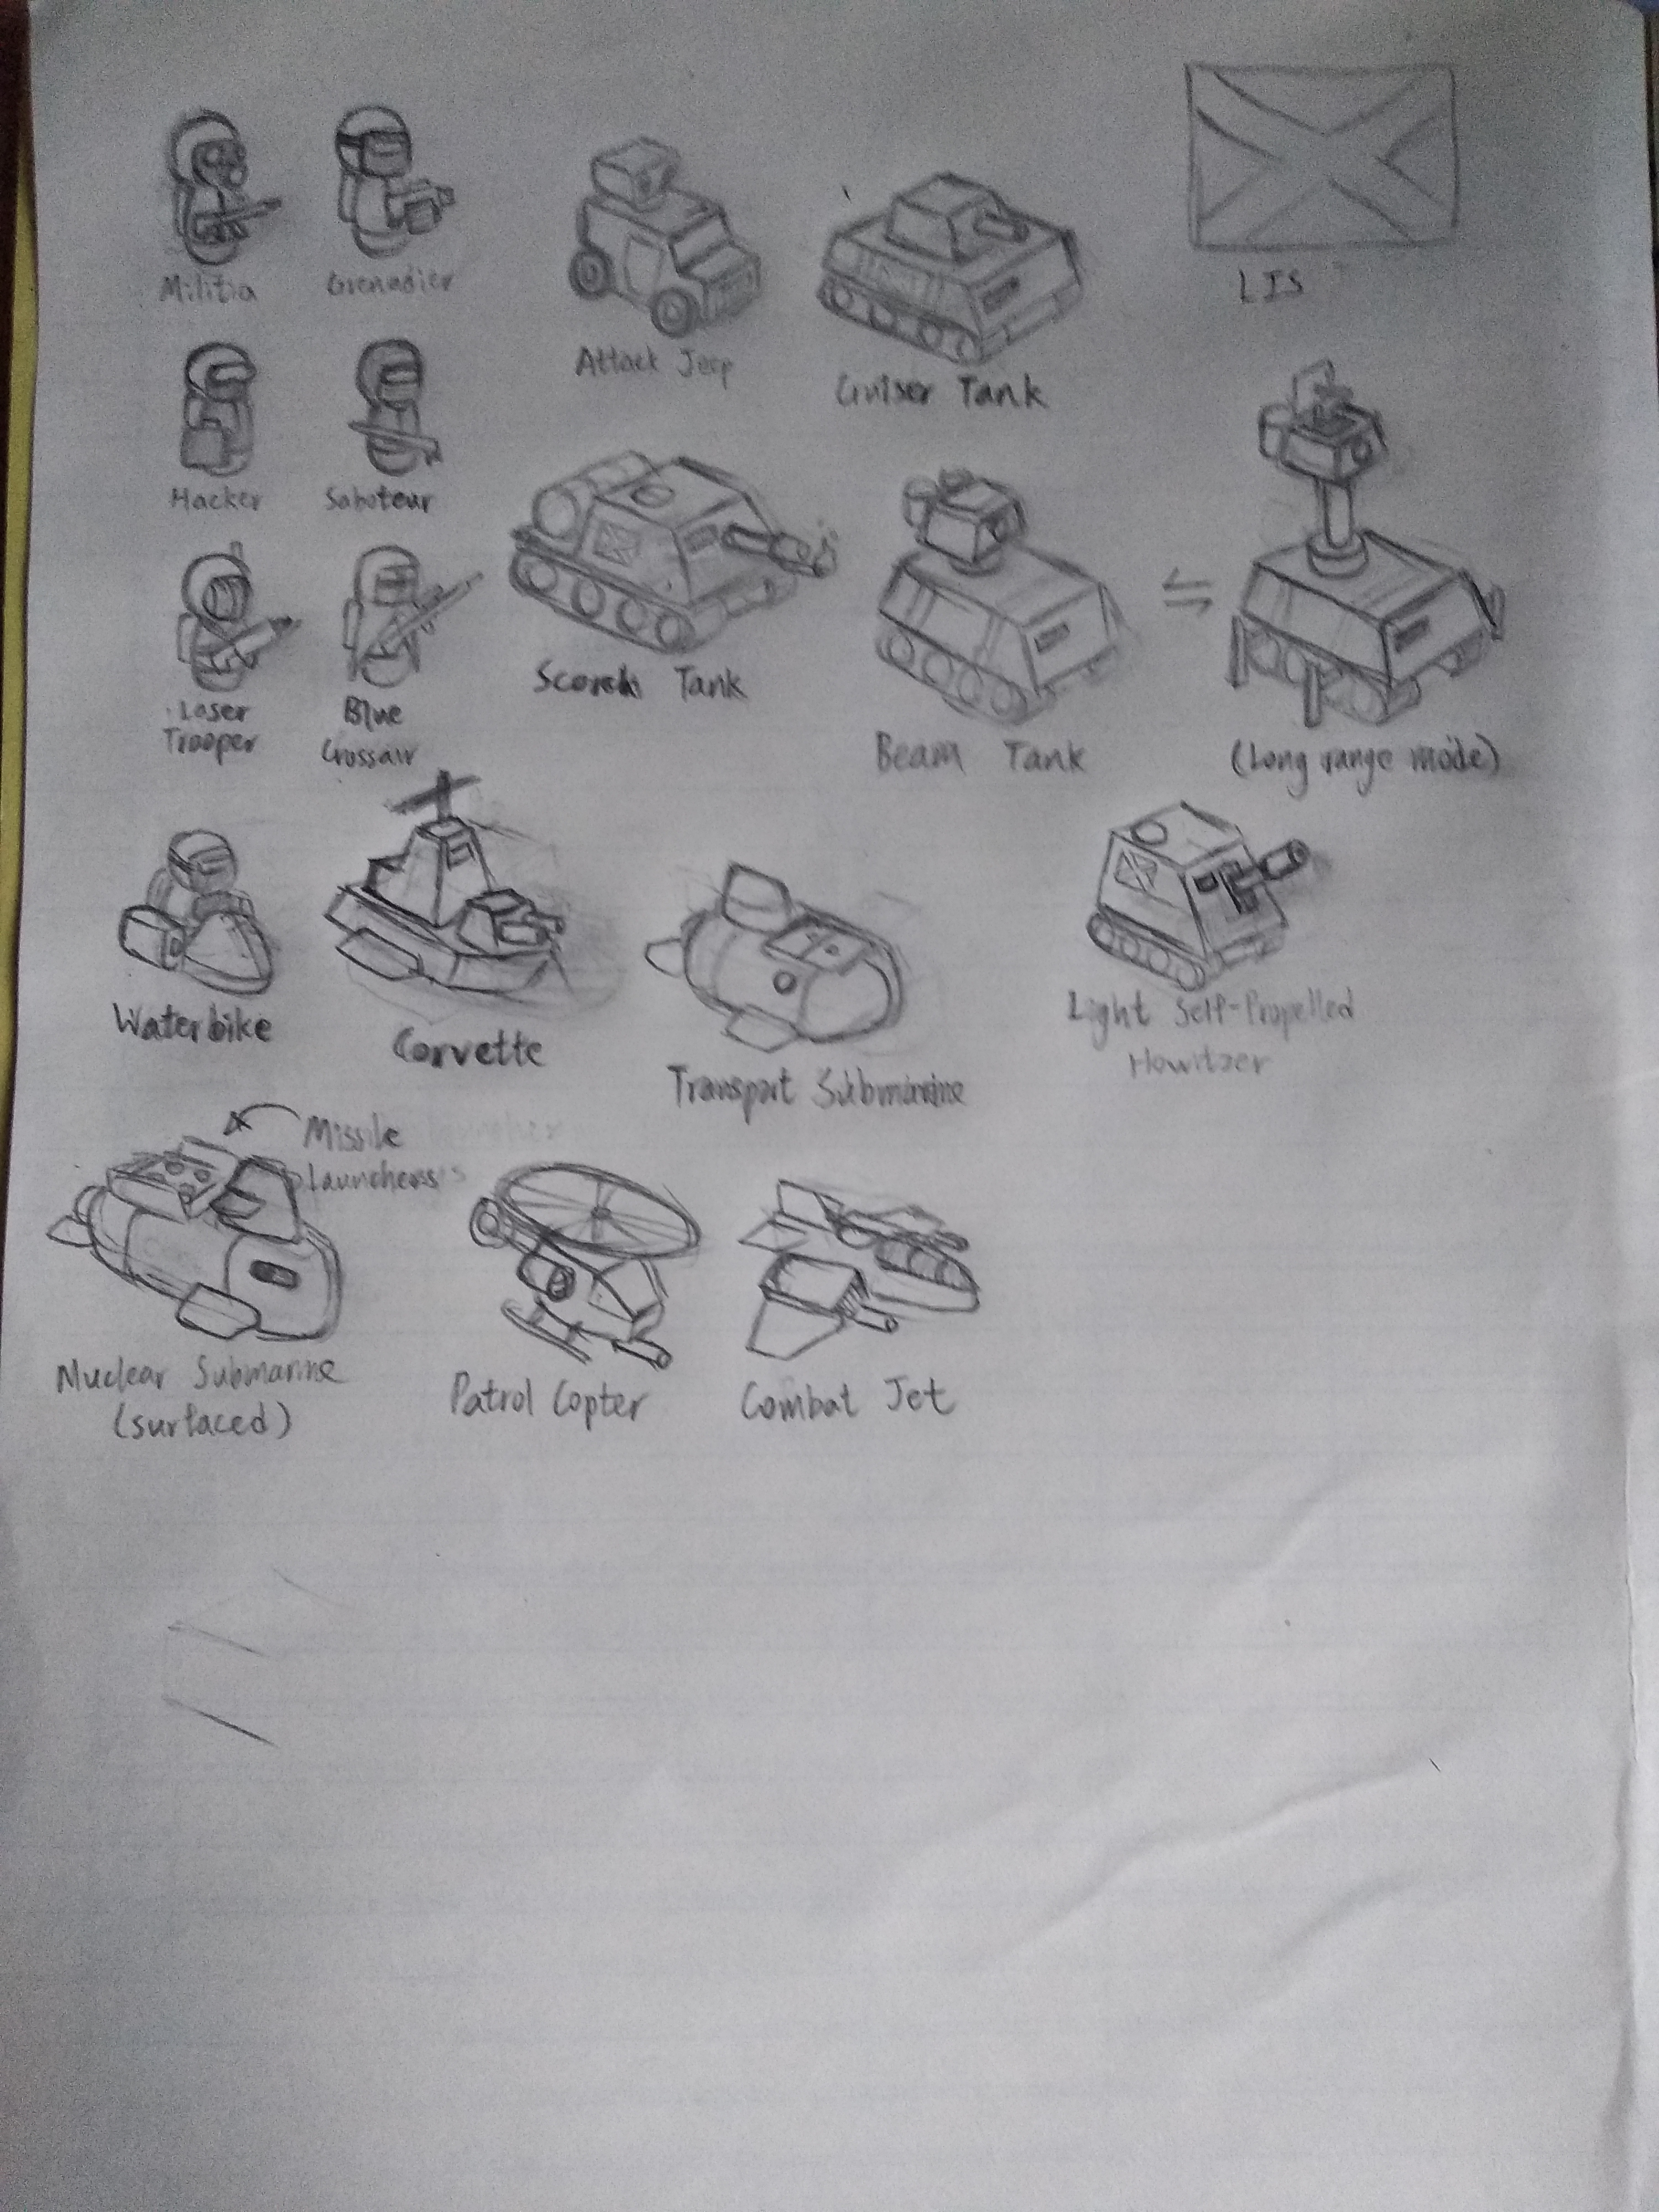 LIS
Militia
Grenadier
Attack Jeep
Cruiser Tank
Hacker
Saboteur
Scorch Tank
Laser
Trooper
Blue
Crossair
Beam Tank
(Long range mode)
Waterbike
Corvette
Transport Submarine
Light Self-Propelled
Howitzer
Missile
Launchers
Nuclear Submarine
(surfaced)
Patrol Copter
Combat Jet